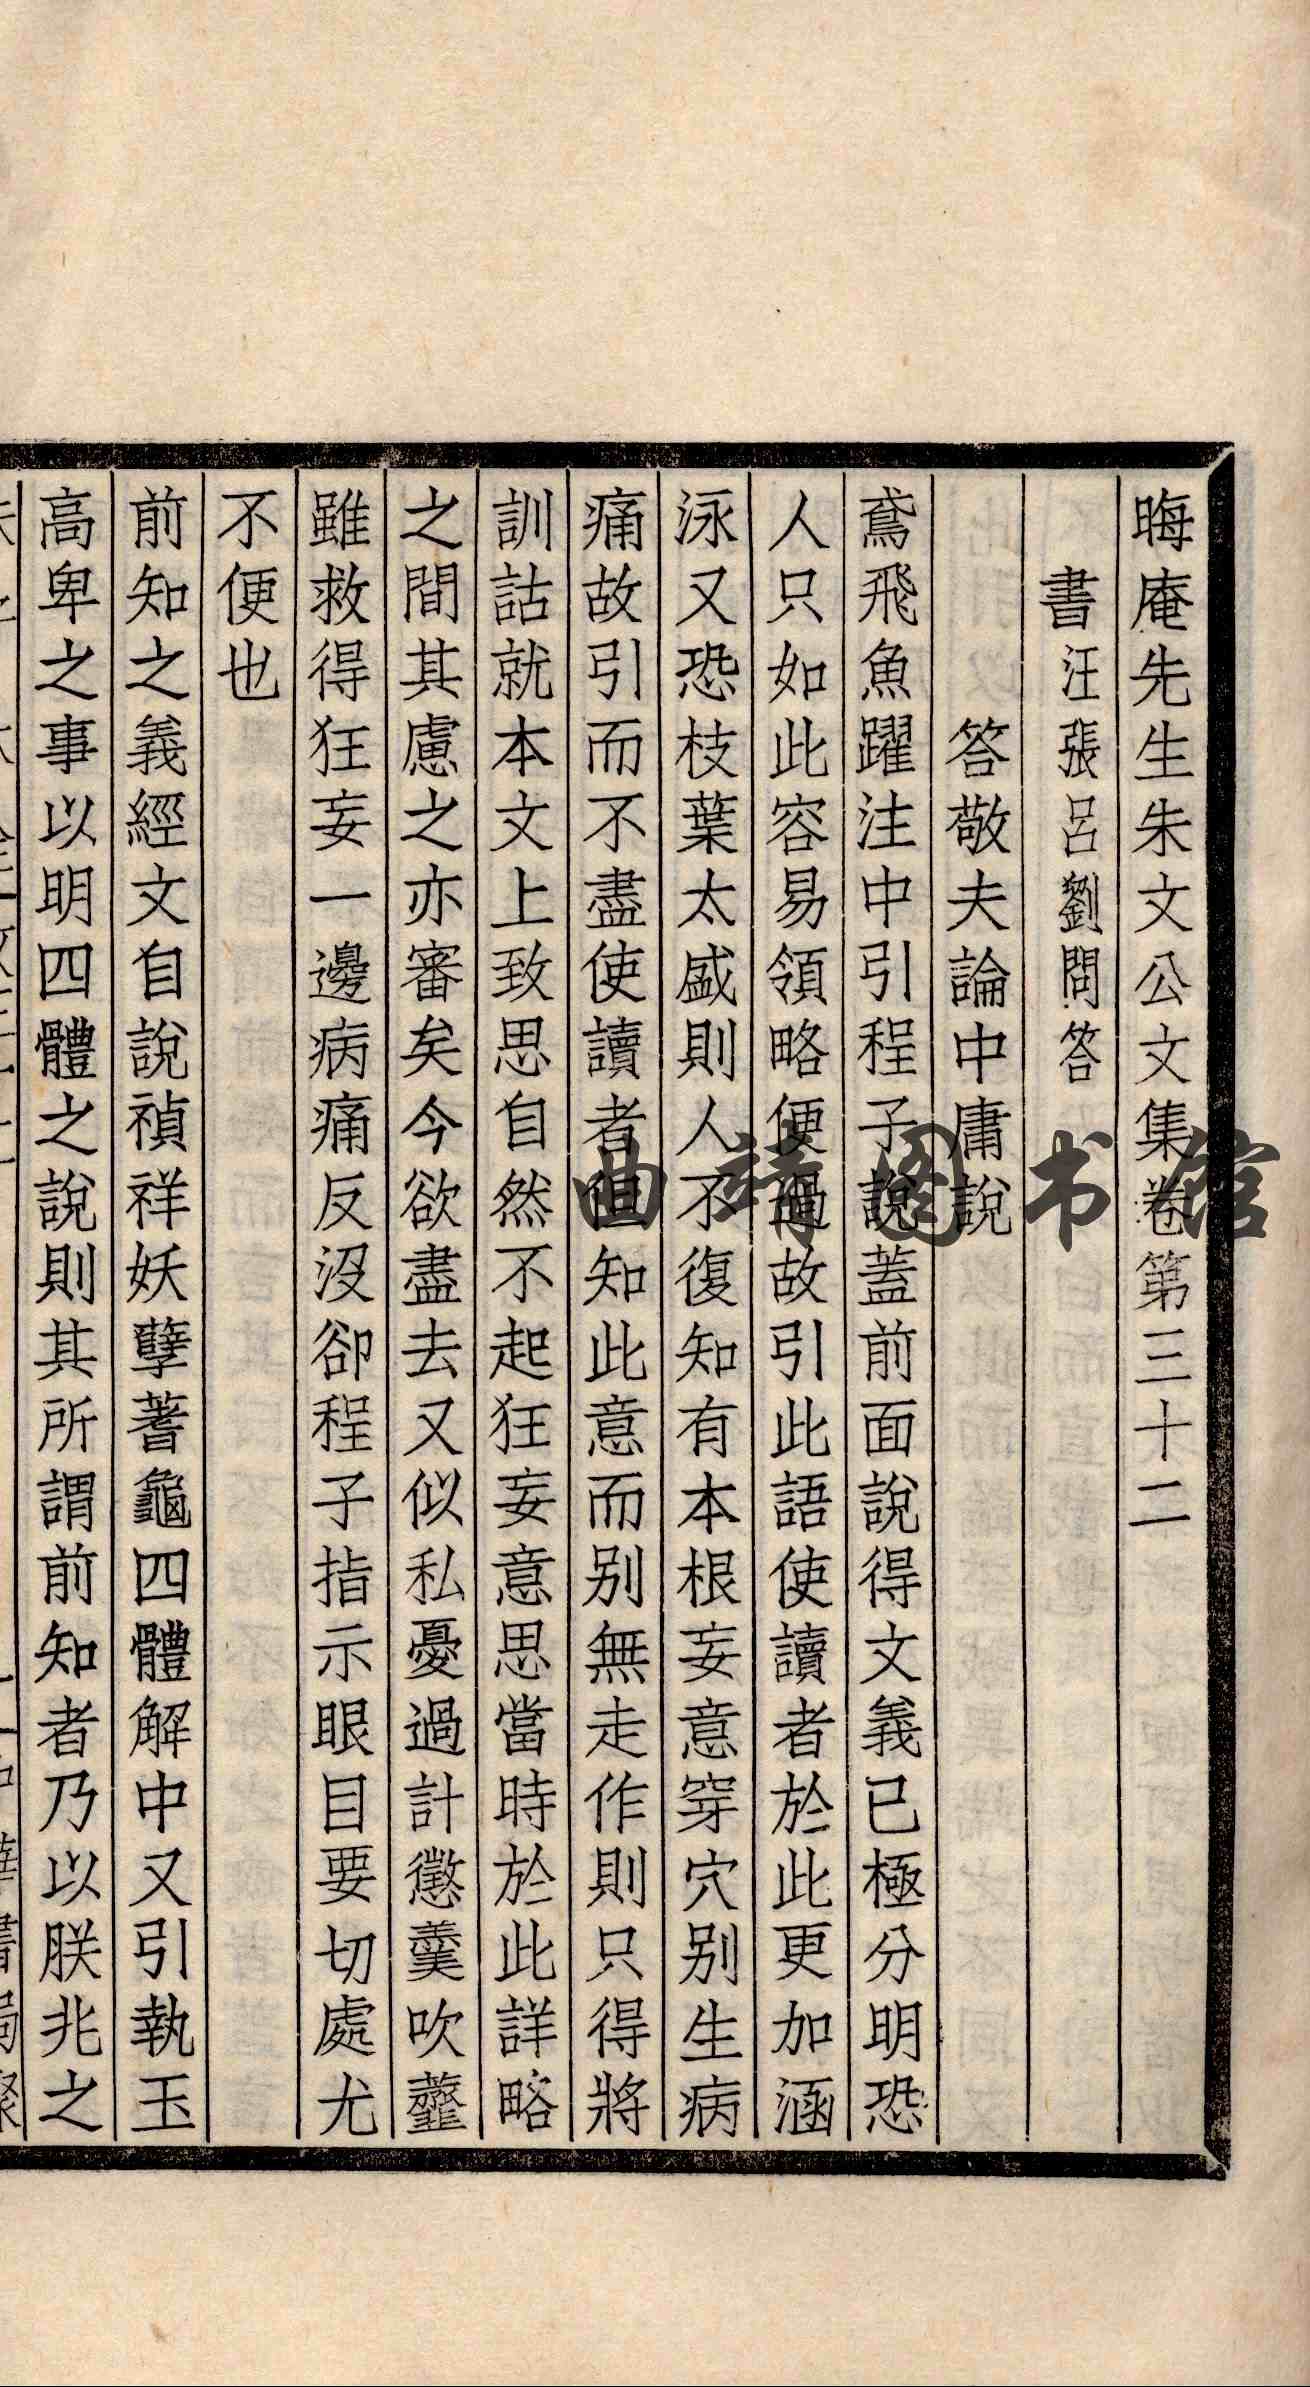 晦庵先生朱文公文集卷第三十二
書汪張呂劉問答
答敬夫論中庸說
鳶飛魚躍注中引程子說蓋前面說得文義已極分明恐
人只如此容易領略便過故引此語使讀者於此更加涵
泳又恐枝葉太盛則人不復知有本根妄意穿穴别生病
痛故引而不盡使讀者但知此意而别無走作則只得將
訓詁就本文上致思自然不起狂妄意思當時於此詳略
之間其慮之亦審矣今欲盡去又似私憂過計懲羹吹虀
雖救得狂妄一邊病痛反沒卻程子指示眼目要切處尤
不便也
前知之義經文自說禎祥妖孽蓍龜四體解中又引執玉
高卑之事以明四體之說則其所謂前知者乃以朕兆之
曲靖图书馆